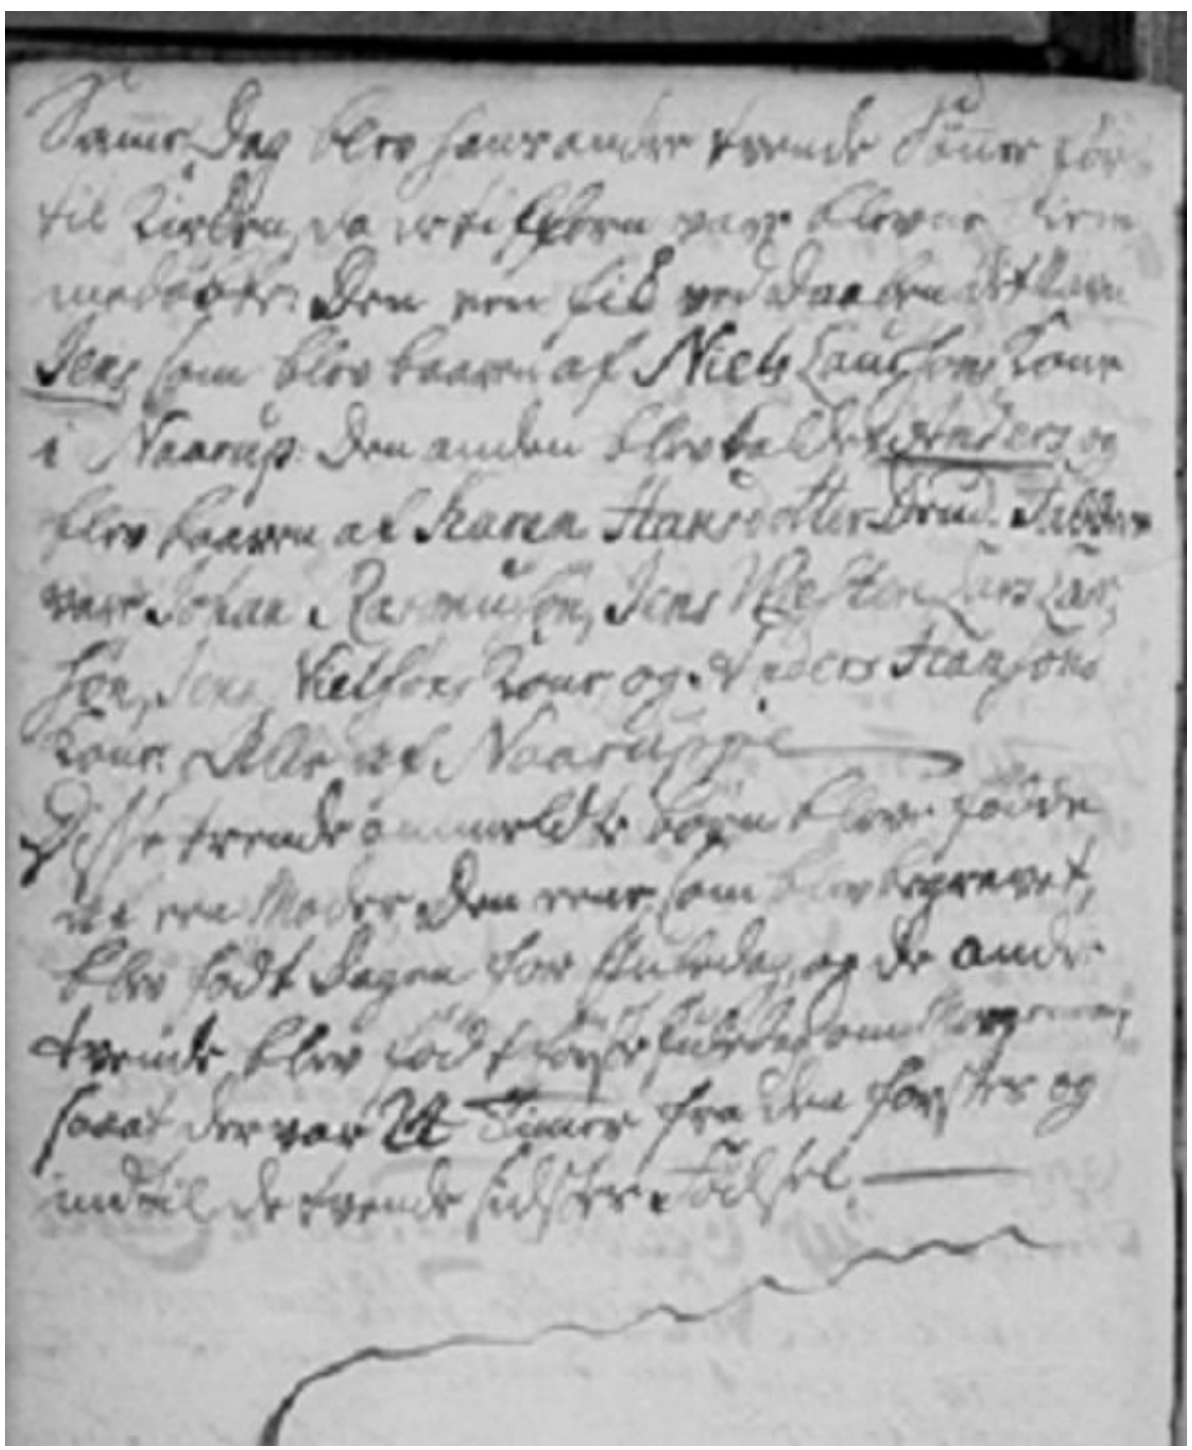 Samme Dag blev hans anden tvende Sönner för
til Kirken, da de ei hiem vare blevne
med döbte. Den een fik ved Daaben det Navn
Jens som blev baaren af Niels Laugsöns Kone
i Naarup. Den anden blev kaldet Anders og
blev baaren af Karen Hansdotter Drud. Fadder
var Johan Rasmusön, Jens Lars Lar,
sön, Jens Nielsöns Kone og Anders Hansöns
Kone. Alle af Naaruppe
Disse trende ommeldte börn bleve födde
af een Moder, Den eene som blev begravet,
blev födt Dagen for Juledag, og de andre
tvende blev födt Juledag om Morgenen
saaat der var 24 Timer fra den förstes og
indtil de tvende sidstes Födsel.